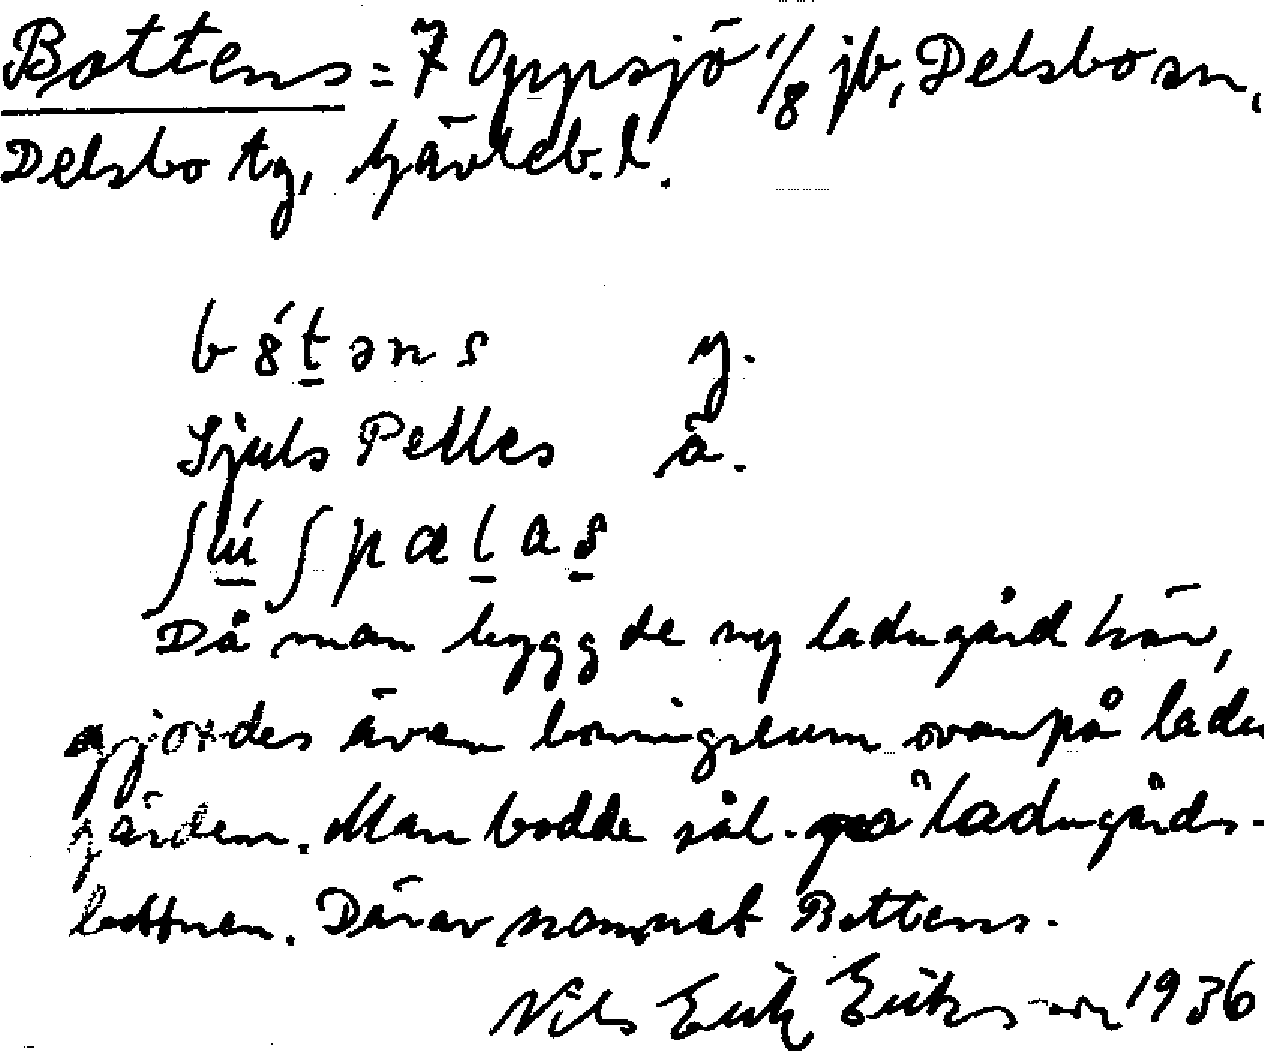 Bottens = 7 Oppsjö 1/8 jb, Delsbo sn,
Delsbo tg, Gävleb. l.
b8́t̲əns y.
Sjuls Pelles ä.
ʃú̲ʃpæl̲as̲
Då man byggde ny ladugård här,
gjordes även boningsrum ovanpå ladu
gården. Man bodde sål. på ladugårds-
bottnen. Därav namnet Bottens.
Nils Erik Eriksson 1936